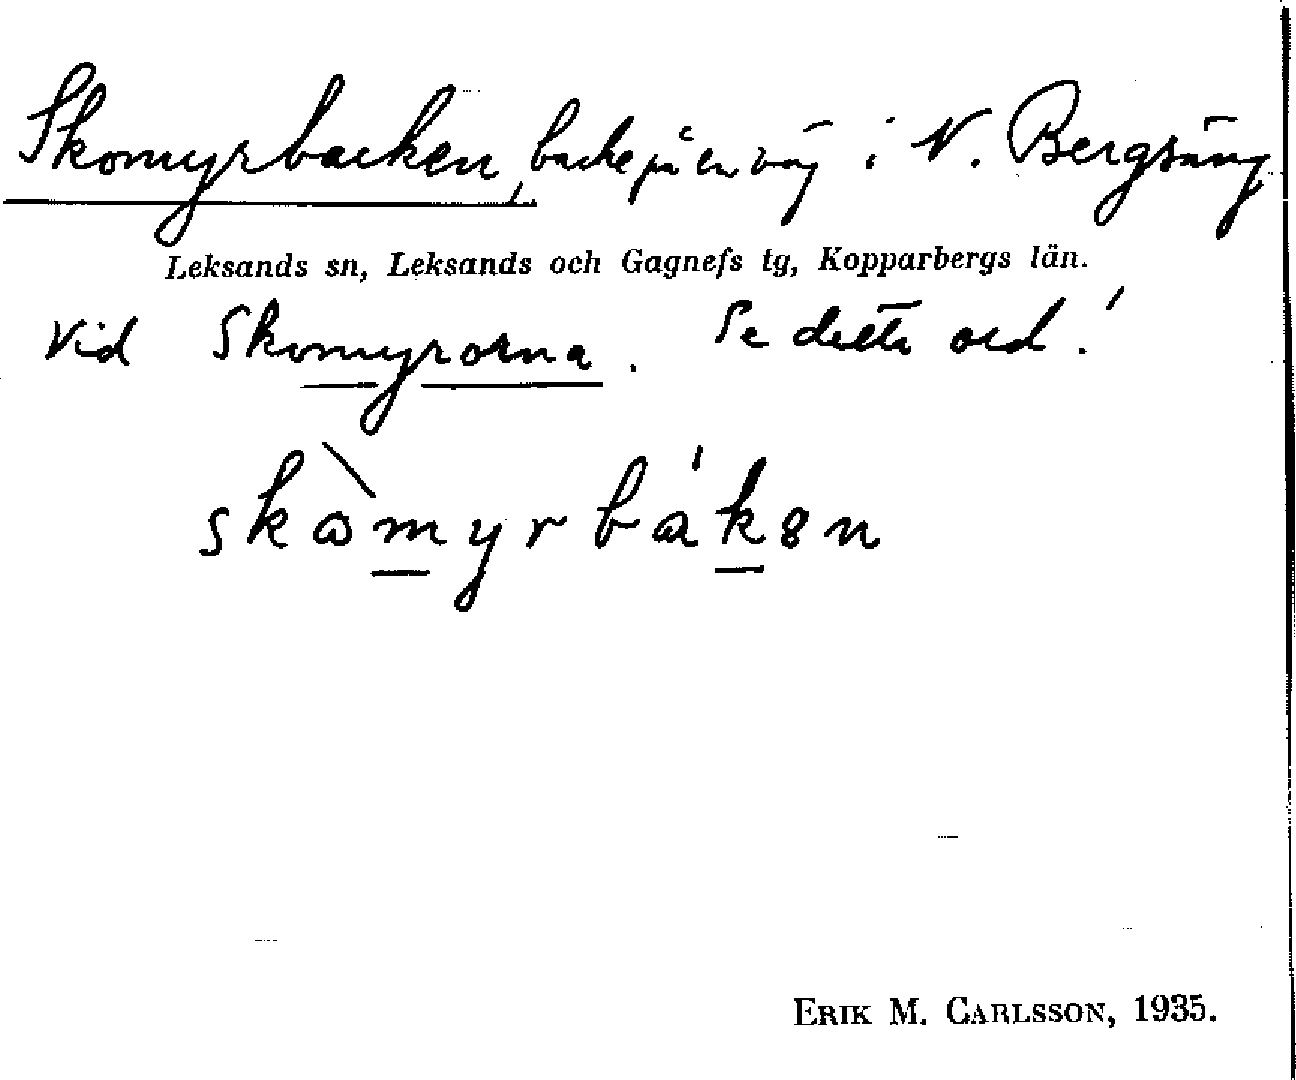 Skomyrbacken, backe på en väg i N. Bergsäng
Leksands sn, Leksands och Gagnefs tg, Kopparbergs län.
Vid Skomyrorna. Se detta ord!
skòmyrbákən
ERIK M. CARLSSON, 1935.